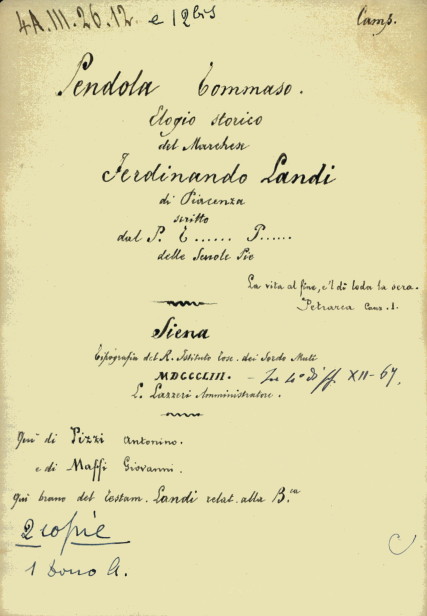 4A.III.26.12. e 12bis
Camp.
Pendola Tommaso.
Elogio storico
del Marchese
Ferdinando Landi
di Piacenza
scritto
dal P. T...... P......
delle Scuole Pie
La vita al fine, e 'l dì loda la sera.
Petrarca Canz. 1.
Siena
Tipografia del R. Istituto Tosc. dei Sordo Muti
MDCCCLIII. – In 4° di ff. XII-67.
L. Lazzeri Amministratore.
Qui di Pizzi Antonino.
e di Maffi Giovanni.
Qui brano del testam. Landi relat. alla B.ca
2 copie
1 Dono